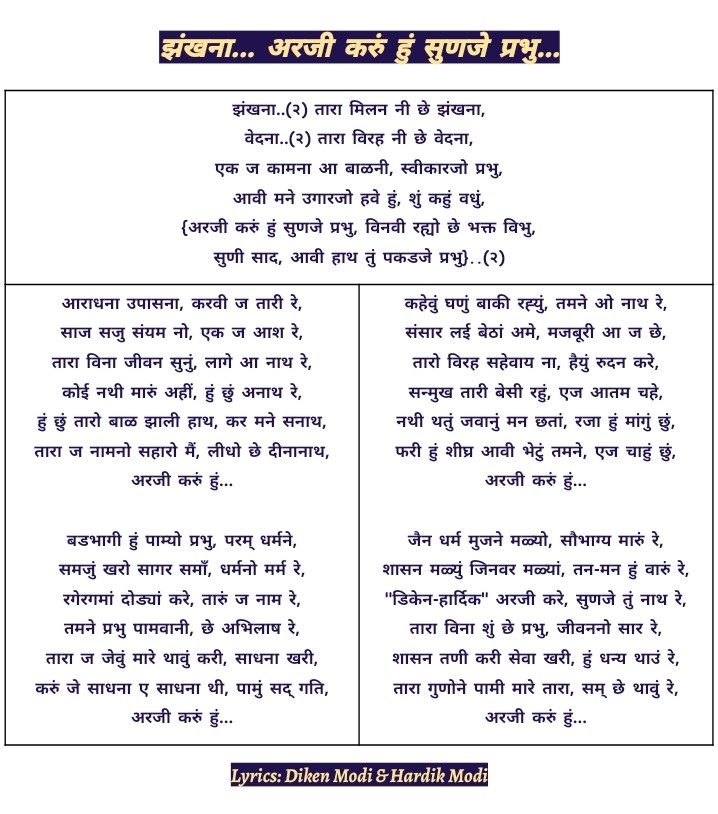 झंखना... अरजी करुं हुं सुणजे प्रभु...
झंखना..(२) तारा मिलन नी छे झंखना,
वेदना..(२) तारा विरह नी छे वेदना,
एक ज कामना आ बाळनी, स्वीकारजो प्रभु,
आवी मने उगारजो हवे हुं, शुं कहुं वधुं,
{अरजी करुं हुं सुणजे प्रभु, विनवी रह्यो छे भक्त विभु,
सुणी साद, आवी हाथ तुं पकडजे प्रभु}..(२)
आराधना उपासना, करवी ज तारी रे,
साज सजु संयम नो, एक ज आश रे,
तारा विना जीवन सुनुं, लागे आ नाथ रे,
कोई नथी मारुं अहीं, हुं छुं अनाथ रे,
हुं छुं तारो बाळ झाली हाथ, कर मने सनाथ,
तारा ज नामनो सहारो मैं, लीधो छे दीनानाथ,
अरजी करुं हुं...
बडभागी हुं पाम्यो प्रभु, परम् धर्मने,
समजुं खरो सागर समाँ, धर्मनो मर्म रे,
रगेरगमां दोड्यां करे, तारुं ज नाम रे,
तमने प्रभु पामवानी, छे अभिलाष रे,
तारा ज जेवुं मारे थावुं करी, साधना खरी,
करुं जे साधना ए साधना थी, पामुं सद् गति,
अरजी करुं हुं...
कहेवुं घणुं बाकी रह्युं, तमने ओ नाथ रे,
संसार लई बेठां अमे, मजबूरी आ ज छे,
तारो विरह सहेवाय ना, हैयुं रुदन करे,
सन्मुख तारी बेसी रहुं, एज आतम चहे,
नथी थतुं जवानुं मन छतां, रजा हुं मांगुं छुं,
फरी हुं शीघ्र आवी भेटुं तमने, एज चाहुं छुं,
अरजी करुं हुं...
जैन धर्म मुजने मळ्यो, सौभाग्य मारुं रे,
शासन मळ्युं जिनवर मळ्यां, तन-मन हुं वारुं रे,
"डिकेन-हार्दिक" अरजी करे, सुणजे तुं नाथ रे,
तारा विना शुं छे प्रभु, जीवननो सार रे,
शासन तणी करी सेवा खरी, हुं धन्य थाउं रे,
तारा गुणोने पामी मारे तारा, सम् छे थावुं रे,
अरजी करुं हुं...
Lyrics: Diken Modi & Hardik Modi